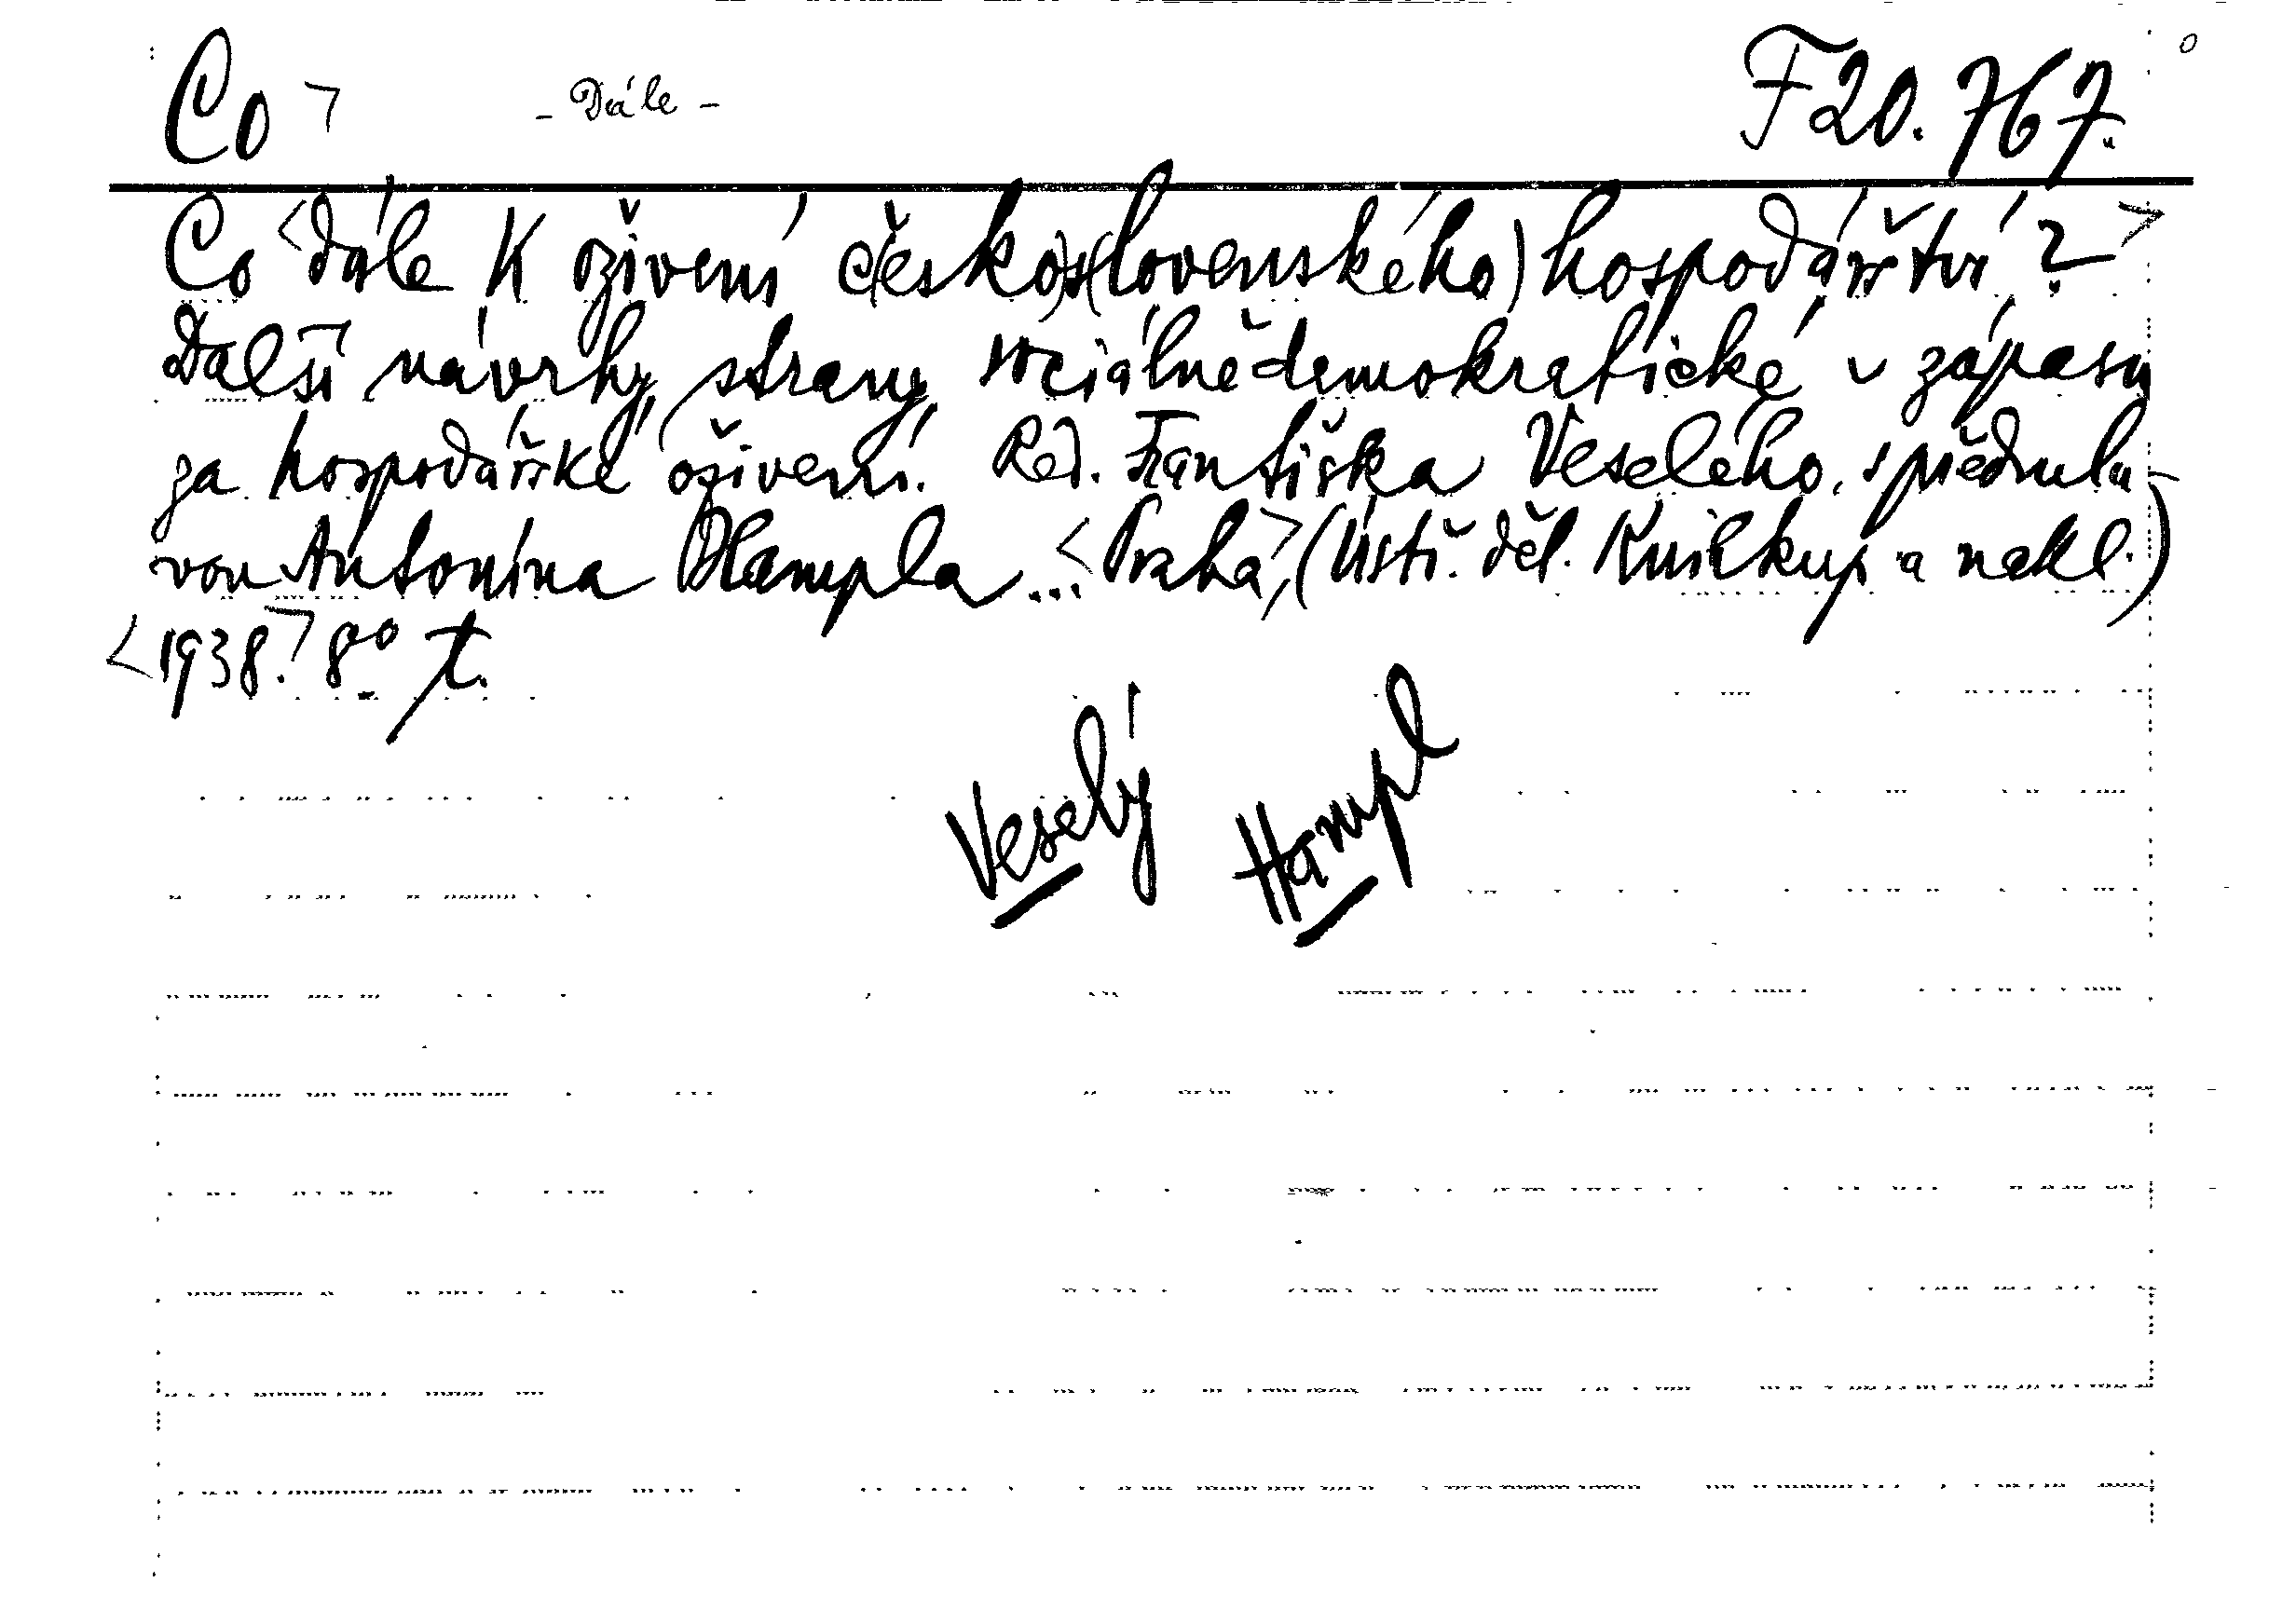 Co > - Dále - F 20.767.
Co <dále k oživení č(esko)s(lovenského) hospodářství ? >
Další návrhy strany sociálně demokratické v zápasu
za hospodářské oživení. Red. Františka Veselého, s předmlu-
vou Antonína Hampla ... <Praha>, (Ústř. děl. knihkup. a nakl.)
<1938.> 8° t.
Veselý Hampl